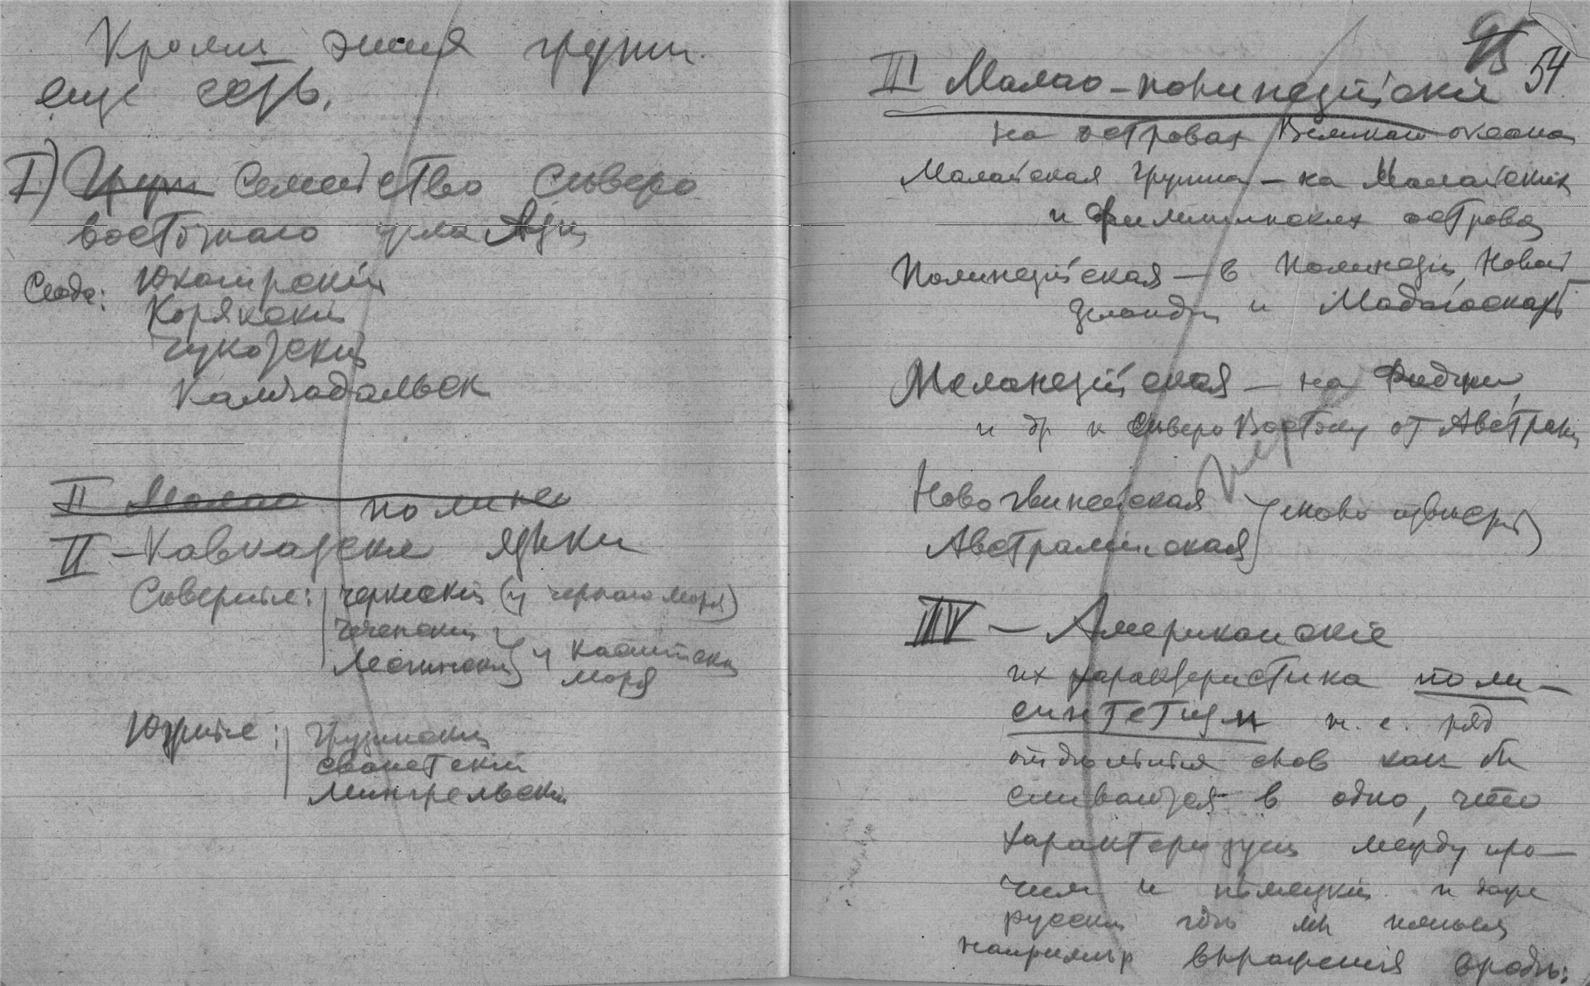 Кроме этих групп
еще есть.
I) Груп Семейство Северо
восточного угла Азiи
Сюда: Юкагирскiй
Корякскiй
Чукотскiй
Камчадальск
II Малао полине
II – Кавказскiе языки
Северные: черкескiй (у чернаго моря)
Чеченскiй
Лезгинскiй } у Каспiйски
моря
Южные: Грузинскiй
сванетскiй
Мингрельскiй
54
III Малао-полинезiйскiе
на островах Великаго океана
Малайская группа – на Малайских
и Филиппинских острова
Полинезiйская – в Полинезiи, Новой
Зеландiи и Мадагаскарѣ
Меланезiйская – на Фиджи,
и др к сѣверо Востоку от Австралiи
Ново гвинейская
Австралийская
IV – Американскiе
их характеристика поли-
синтетизм т. е. ряд
отдѣльных слов как бы
сливаются в одно, что
характеризует между про-
чим и нѣмецкiй и даже
русскiй гдѣ мы
напримѣр выраженiя вродѣ: